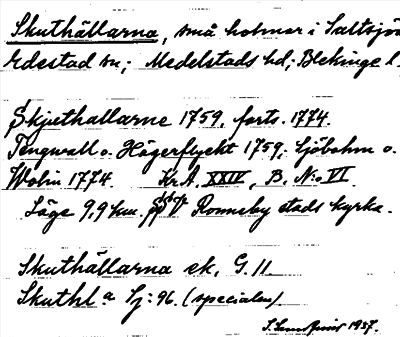 Skuthällarna, små holmar i Saltsjö
Edestad sn; Medelstads hd; Blekinge l.
Skjuthallarne 1759. forts. 1774.
Tengwall o. Högerflycht 1759; Sjöbohm o.
Wolin 1774. Kr.A. XXIV, B. No VI
Läge 9,9 km. Ronneby stads kyrka.
Skuthällarna ek. G. 11.
Skuthl a Sj: 96. (specialen).
1937.